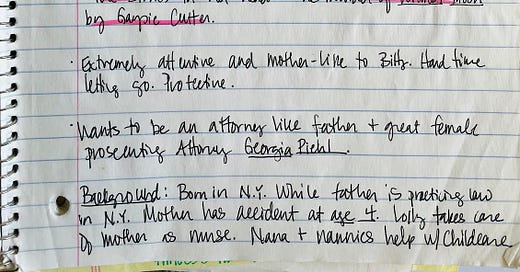 by Garpie Cutter.
· Extremely attentive and mother-like to Billy. Hard time
letting go. Protective.
· Wants to be an attorney like father + great female
prosecuting Attorney Georgia Piehl.
Background: Born in N.Y. While father is practicing law
in N.Y. Mother has accident at age 4. Lolly takes care
of mother as nurse. Nana + nannies help w/ Childcare